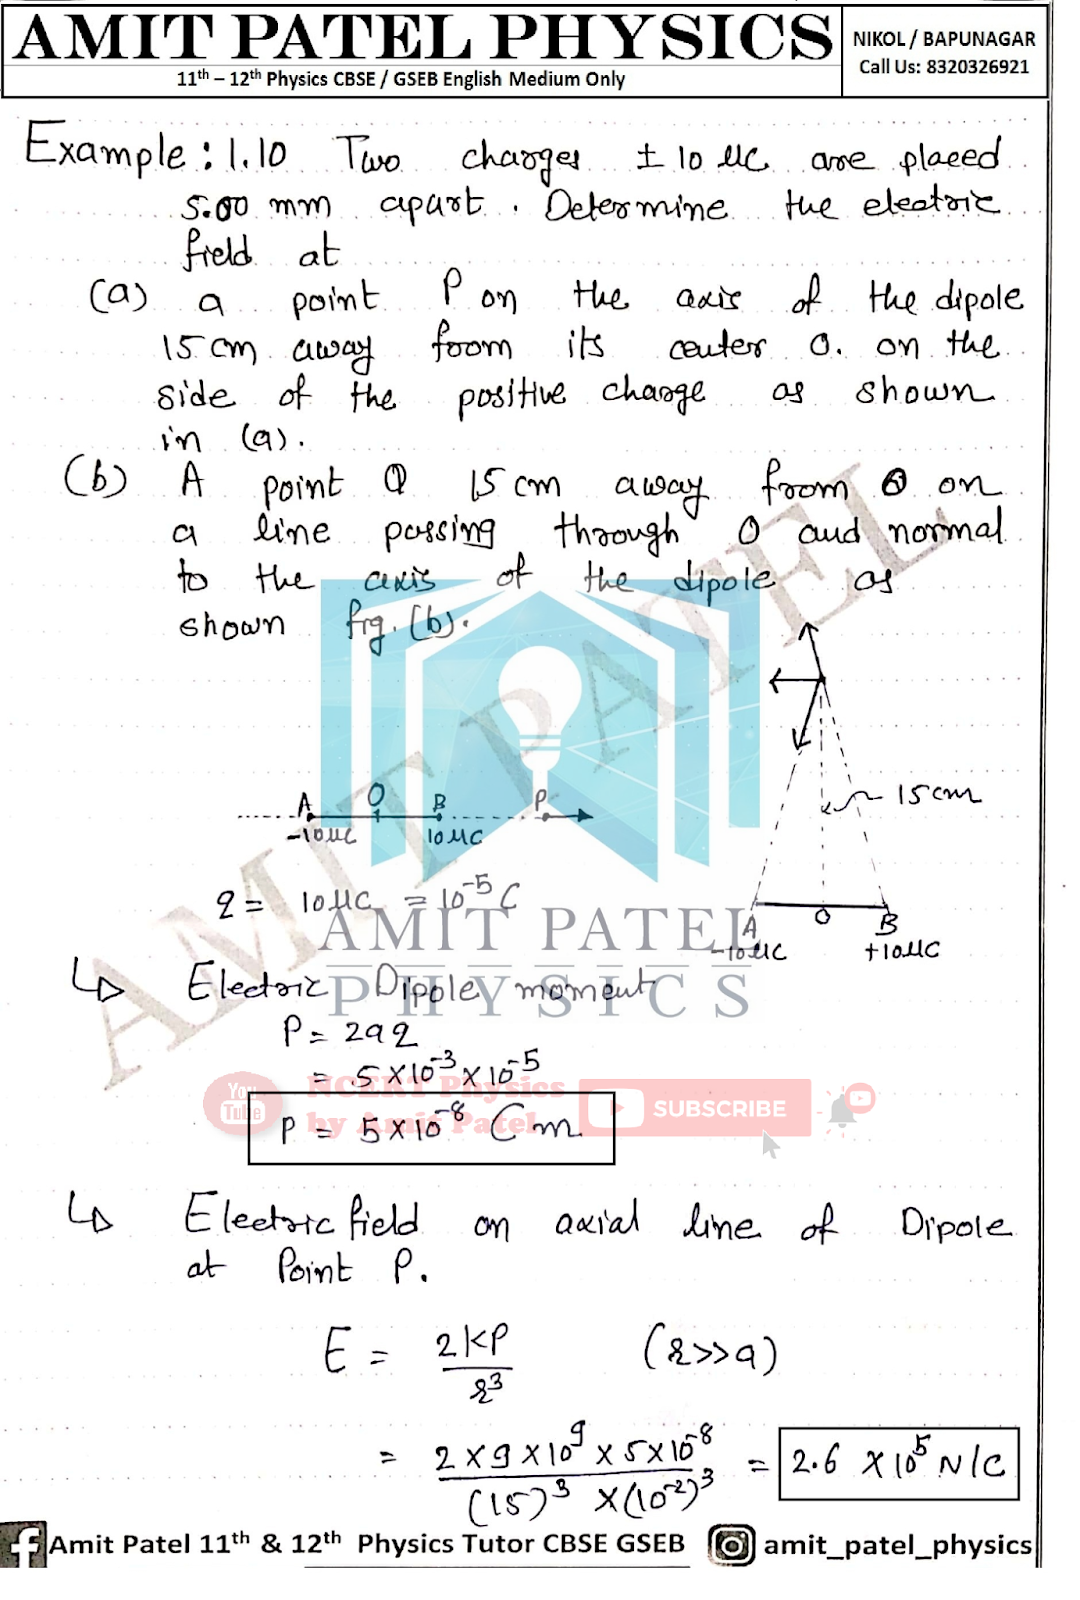 AMIT PATEL PHYSICS
11th – 12th Physics CBSE / GSEB English Medium Only
NIKOL / BAPUNAGAR
Call Us: 8320326921
Example : 1.10 Two charges ± 10 μC are placed
5.00 mm apart. Determine the electric
field at
(a) a point P on the axis of the dipole
15 cm away from its center O. on the
side of the positive charge as shown
in (a).
(b) A point Q 15 cm away from O on
a line passing through O and normal
to the axis of the dipole as
shown fig. (b).
A O B P
-10μC 10μC
15cm
A O B
-10μC +10μC
q = 10μC = 10⁻⁵ C
AMIT PATEL
PHYSICS
AMIT PATEL
Electric Dipole moment
P = 2aq
= 5 × 10⁻³ × 10⁻⁵
You Tube
NCERT Physics
by Amit Patel
SUBSCRIBE
P = 5×10⁻⁸ C m
Electric field on axial line of Dipole
at Point P.
E = 2kP / r³ (r>>a)
= 2 × 9 × 10⁹ × 5×10⁻⁸ / (15)³ × (10⁻²)³ = 2.6 × 10⁵ N/C
Amit Patel 11th & 12th Physics Tutor CBSE GSEB
amit_patel_physics